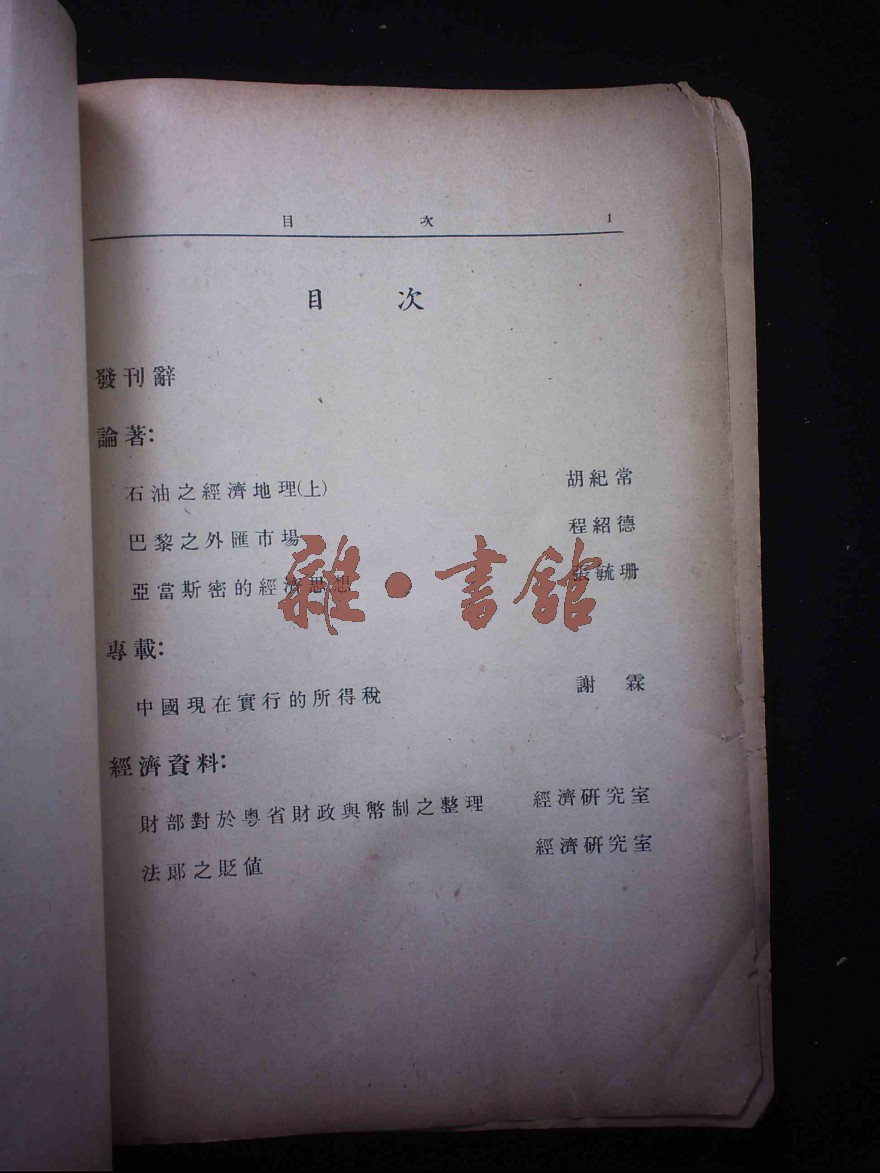 目次 1
目次
發刊辭
論著：
石油之經濟地理(上) 胡紀常
巴黎之外匯市場 程紹德
亞當斯密的經濟思想 張毓珊
專載：
中國現在實行的所得稅 謝霖
經濟資料：
財部對於粵省財政與幣制之整理 經濟研究室
法郎之貶值 經濟研究室
雜·書館